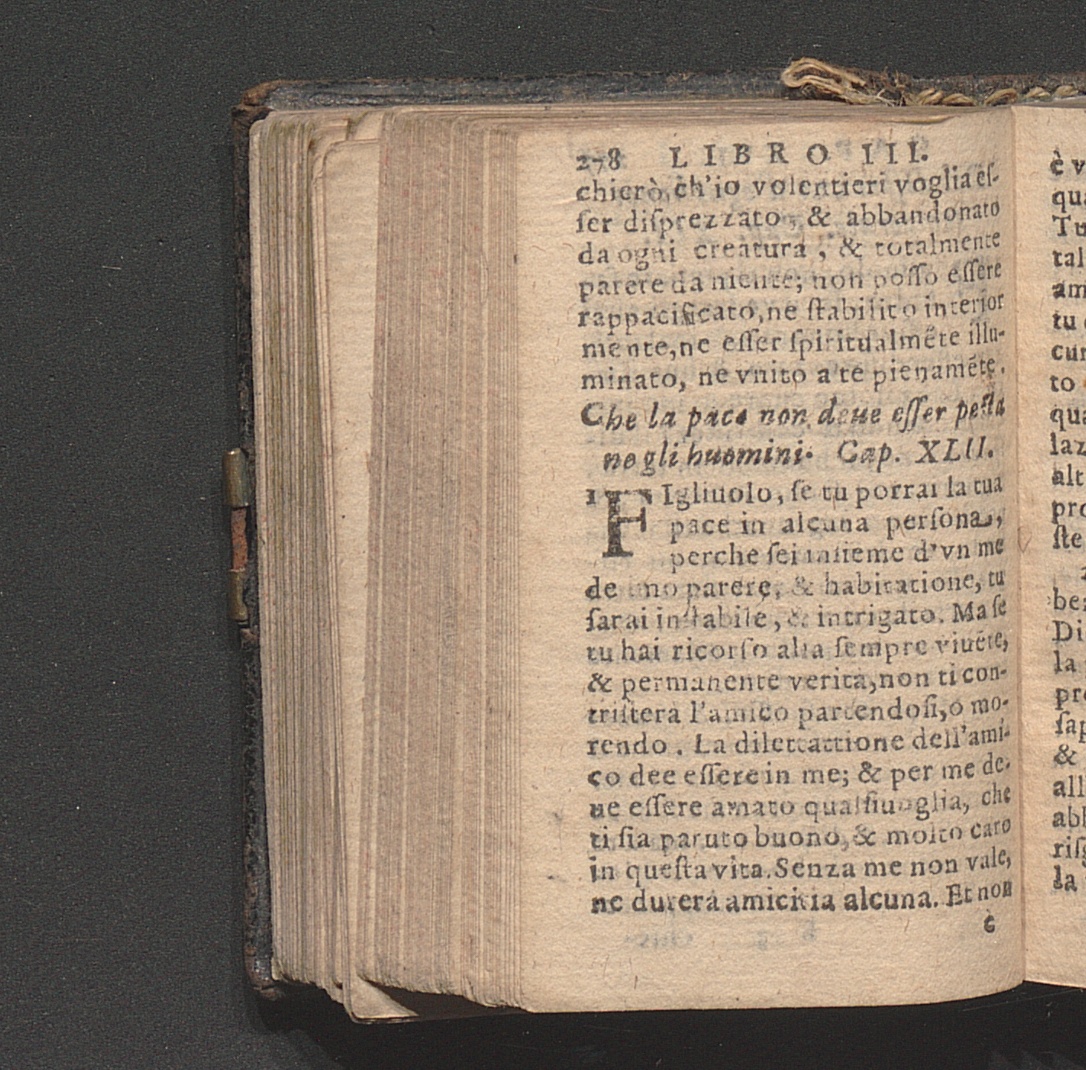 278 LIBRO III.
chierò, ch'io volentieri voglia eſ-
ſer diſprezzato, & abbandonato
da ogni creatura, & totalmente
parere da niente; non poſſo eſſere
rappacificato, ne ſtabilito interior
mente, ne eſſer ſpiritualmẽte illu-
minato, ne vnito a te pienamẽte.
Che la pace non deue eſſer poſta
ne gli huomini. Cap. XLII.
1 FIgliuolo, ſe tu porrai la tua
pace in alcuna perſona,
perche ſei inſieme d'vn me
deſimo parere, & habitatione, tu
ſarai inſtabile, & intrigato. Ma ſe
tu hai ricorſo alla ſempre viuẽte,
& permanente verità, non ti con-
triſterà l'amico partendoſi, o mo-
rendo. La dilettattione dell'ami-
co dee eſſere in me; & per me de-
ue eſſere amato qualſiuoglia, che
ti ſia paruto buono, & molto caro
in queſta vita. Senza me non vale,
ne durerà amicitia alcuna. Et non
è
è v
qua
Tu
tal
am
tu
cun
to
qua
laz
alt
pro
ſte
bea
Di
la
pro
ſap
&
all
abb
riſg
la